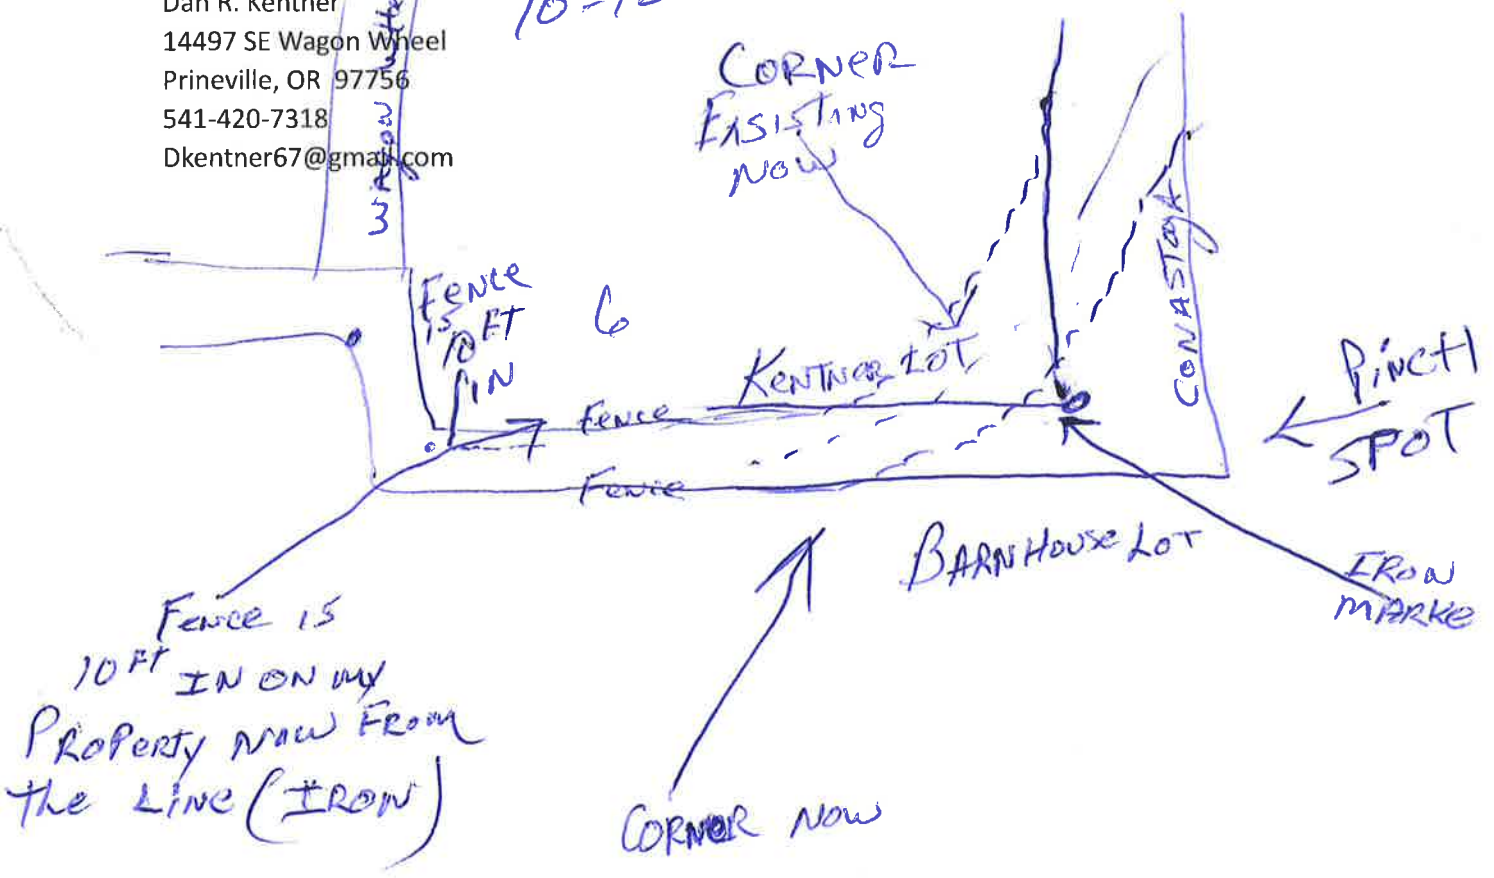 Dan R. Kentner
14497 SE Wagon Wheel
Prineville, OR 97756
541-420-7318
Dkentner67@gmail.com
WAgon
CORNER
EXSISTING
NOW
CONASTOgA
FENCE
IS
10 FT
IN
6
KENTNER LOT
Fence
Fence
PiNCH
SPOT
BARNHOUSE LOT
IRON
MARKE
FENCE IS
10 FT IN ON MY
PROPERTY NOW FROM
the LINE (IRON)
CORNER NOW